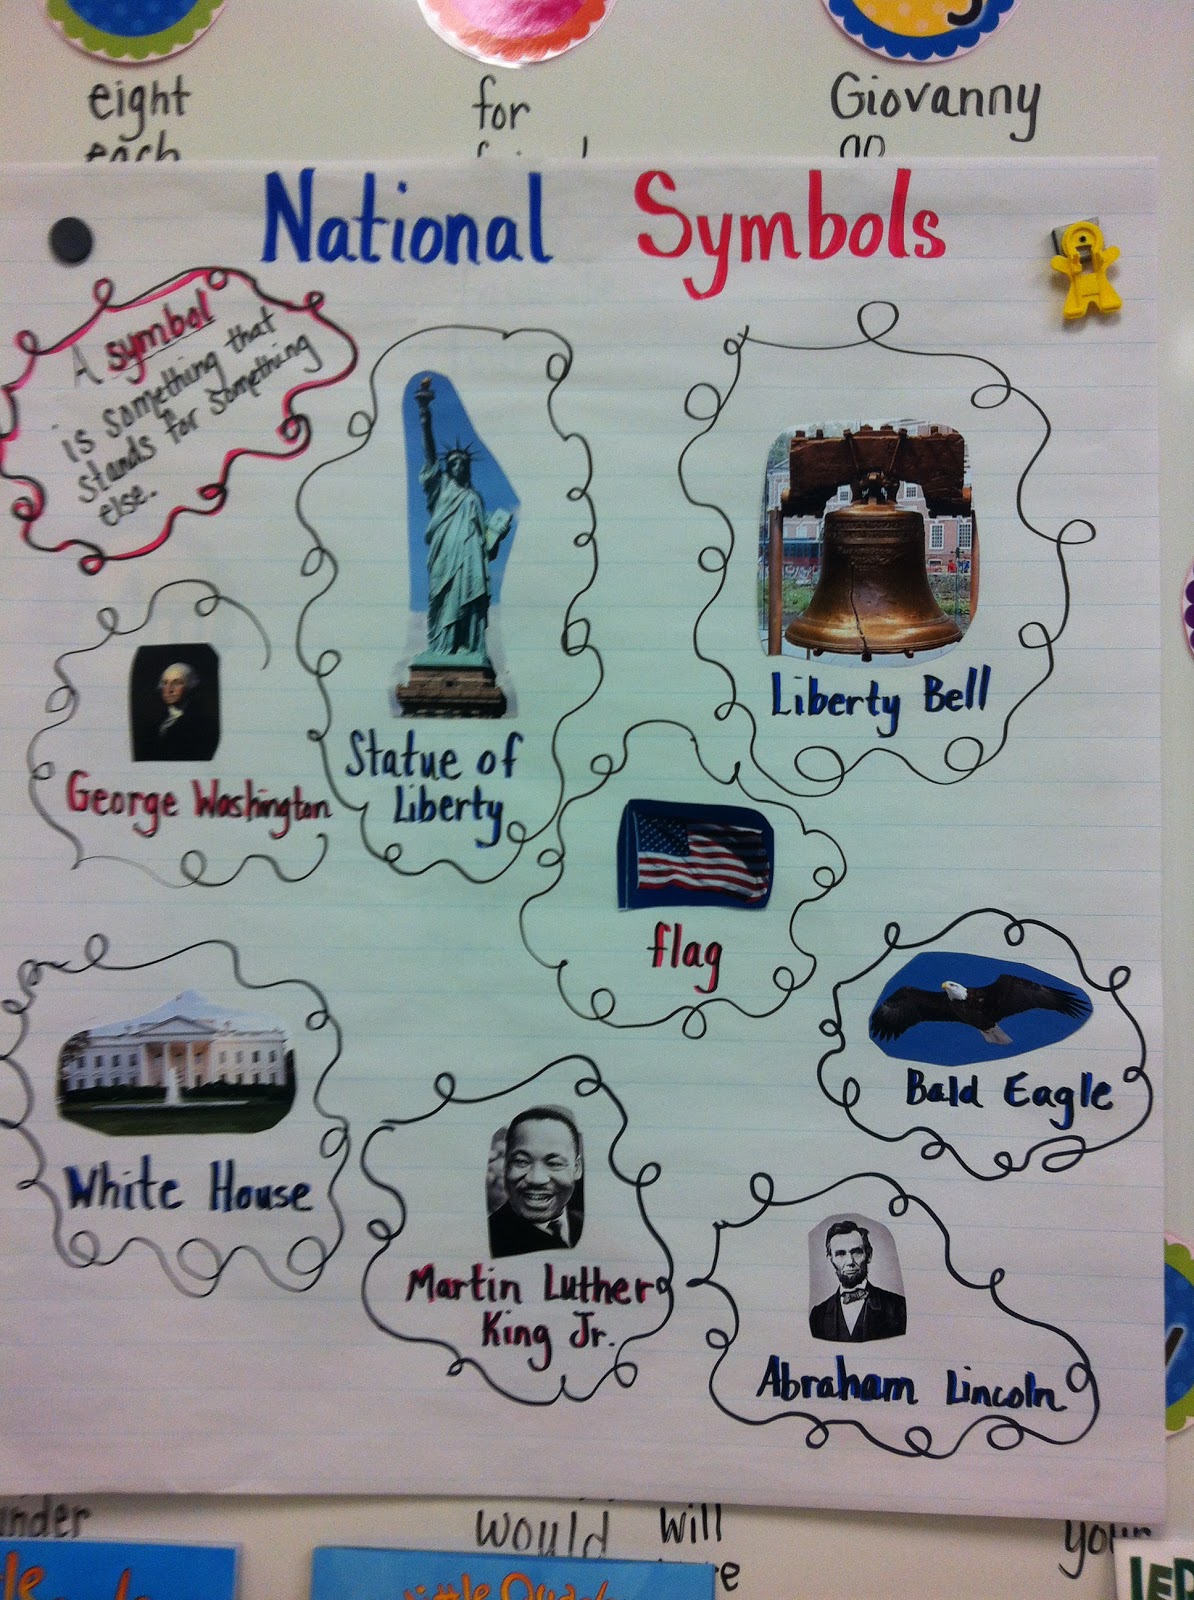 eight
for
Giovanny
each
National Symbols
A symbol
is something that
stands for something
else.
Statue of
Liberty
Liberty Bell
George Washington
flag
Bald Eagle
White House
Martin Luther
King Jr.
Abraham Lincoln
would
will
your